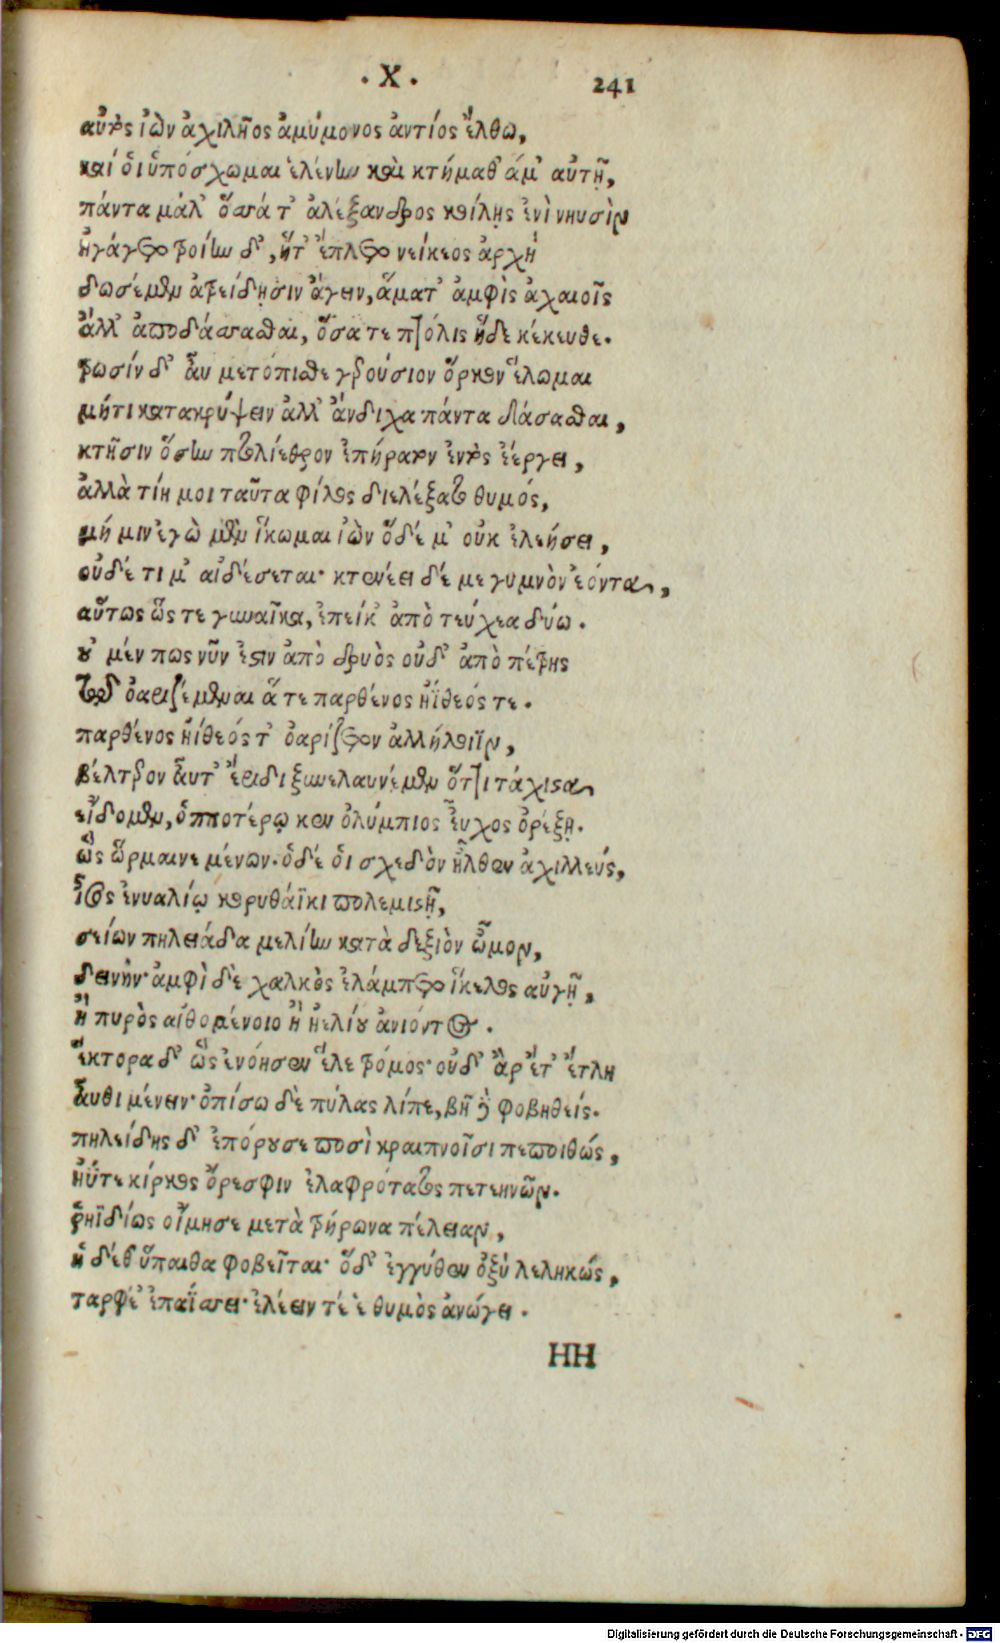 · Χ · 241
αὐτὸς ἰὼν ἀχιλῆος ἀμύμονος ἀντίος ἔλθω,
καί ὁι ὑπόσχωμαι ἑλένην καὶ κτήμαθ' ἅμ' αὐτῇ,
πάντα μάλ' ὅσσά τ' ἀλέξανδρος κοίλῃς ἐνὶ νηυσὶν
ἠγάγετο τροίην δ', ἥτ' ἔπλετο νείκεος ἀρχὴ
δωσέμεν ἀτρείδῃσιν ἄγειν, ἅματ' ἀμφὶς ἀχαιοῖς
ἀλλ' ἀποδάσσασθαι, ὅσα τε πτόλις ἥδε κέκευθε.
τρωσίν δ' ἆυ μετόπισθε γερούσιον ὅρκον ἕλωμαι
μήτι κατακρύψειν ἀλλ' ἄνδιχα πάντα δάσασθαι,
κτῆσιν ὅσην πτολίεθρον ἐπήρατον ἐντὸς ἐέργει,
ἀλλὰ τίη μοι ταῦτα φίλος διελέξατο θυμός,
μή μιν ἐγὼ μὲν ἵκωμαι ἰὼν ὅδέ μ' οὐκ ἐλεήσει,
οὐδέ τι μ' αἰδέσεται· κτενέει δέ με γυμνὸν ἐόντα,
αὔτως ὥς τε γυναῖκα, ἐπείκ' ἀπὸ τεύχεα δύω.
οὐ μέν πως νῦν ἔστιν ἀπὸ δρυὸς οὐδ' ἀπὸ πέτρης
τῷδ' ὀαριζέμεναι ἅ τε παρθένος ἠΐθεός τε.
παρθένος ἠίθεός τ' ὀαρίζετον ἀλλήλοιϊν,
βέλτερον ἆυτ' ἔριδι ξυνελαυνέμεν ὅττι τάχιστα
εἴδομεν, ὁπποτέρῳ κεν ὀλύμπιος ἔυχος ὀρέξῃ.
ὣς ὥρμαινε μένων· ὁδέ ὁι σχεδὸν ἦλθεν ἀχιλλεύς,
ἶσος ἐνυαλίῳ κορυθάϊκι πολεμιστῇ,
σείων πηλειάδα μελίην κατὰ δεξιὸν ὦμον,
δεινήν· ἀμφὶ δὲ χαλκὸς ἐλάμπετο ἴκελος αὐγῇ,
ἢ πυρὸς αἰθομένοιο ἢ ἠελίου ἀνιόντος.
ἕκτορα δ' ὣς ἐνόησεν ἕλε τρόμος· οὐδ' ἄρ' ἔτ' ἔτλη
ἆυθι μένειν· ὀπίσω δὲ πύλας λίπε, βῆ δὲ φοβηθείς.
πηλείδης δ' ἐπόρουσε ποσὶ κραιπνοῖσι πεποιθώς,
ἠΰτε κίρκος ὄρεσφιν ἐλαφρότατος πετεηνῶν.
ῥηϊδίως οἴμησε μετὰ τρήρωνα πέλειαν,
ἡ δέθ' ὕπαιθα φοβεῖται· ὅδ' ἐγγύθεν ὀξὺ λεληκώς,
ταρφέ' ἐπαΐσσει· ἑλέειν τέ ἑ θυμὸς ἀνώγει.
HH
Digitalisierung gefördert durch die Deutsche Forschungsgemeinschaft - DFG